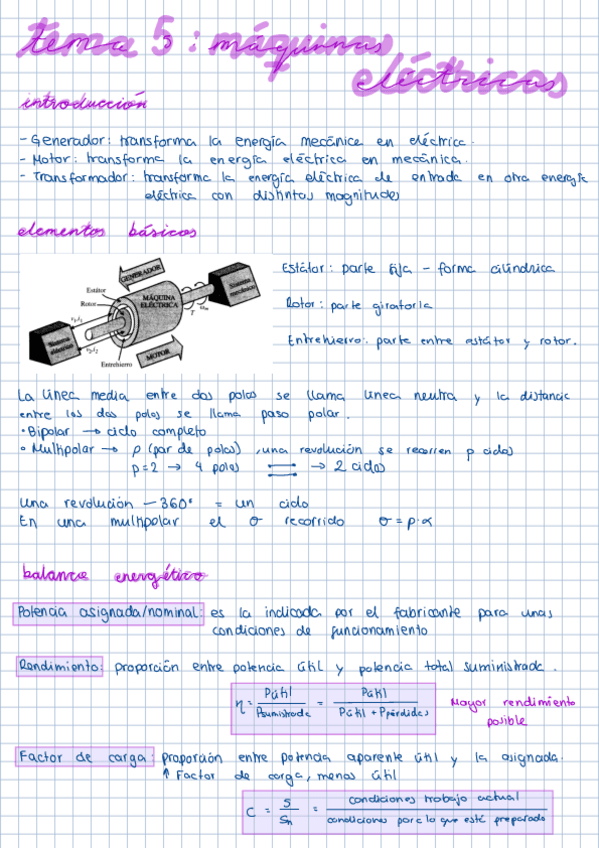 tema 5: máquinas
eléctricas
introducción
- Generador: transforma la energía mecánica en eléctrica.
- Motor: transforma la energía eléctrica en mecánica.
- Transformador: transforma la energía eléctrica de entrada en otra energía
eléctrica con distintas magnitudes
elementos básicos
GENERADOR
Estátor
Rotor
MÁQUINA
ELÉCTRICA
Sistema
mecánico
Sistema
eléctrico
Entrehierro
MOTOR
Estátor: parte fija - forma cilíndrica
Rotor: parte giratoria
Entrehierro: parte entre estátor y rotor.
La línea media entre dos polos se llama línea neutra y la distancia
entre los dos polos se llama paso polar.
• Bipolar → ciclo completo
• Multipolar → p (par de polos), una revolución se recorren p ciclos
p=2 → 4 polos → 2 ciclos
Una revolución — 360° = un ciclo
En una multipolar el σ recorrido σ = p·α
balance energético
Potencia asignada/nominal: es la indicada por el fabricante para unas
condiciones de funcionamiento
Rendimiento: proporción entre potencia útil y potencia total suministrada.
η = Pútil / Psumistrada = Pútil / Pútil + Ppérdidas
Mayor rendimiento
posible
Factor de carga: proporción entre potencia aparente útil y la asignada.
↑ Factor de carga, menos útil
C = S / Sn = condiciones trabajo actual / condiciones para lo que está preparado